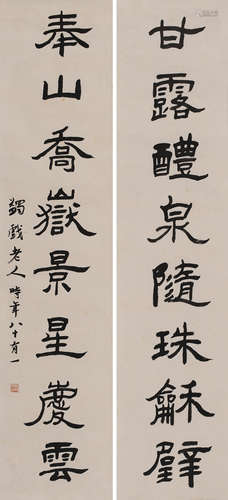 甘露醴泉隨珠龢璧
奉山喬嶽景星慶雲
蠲戲老人時年八十有一